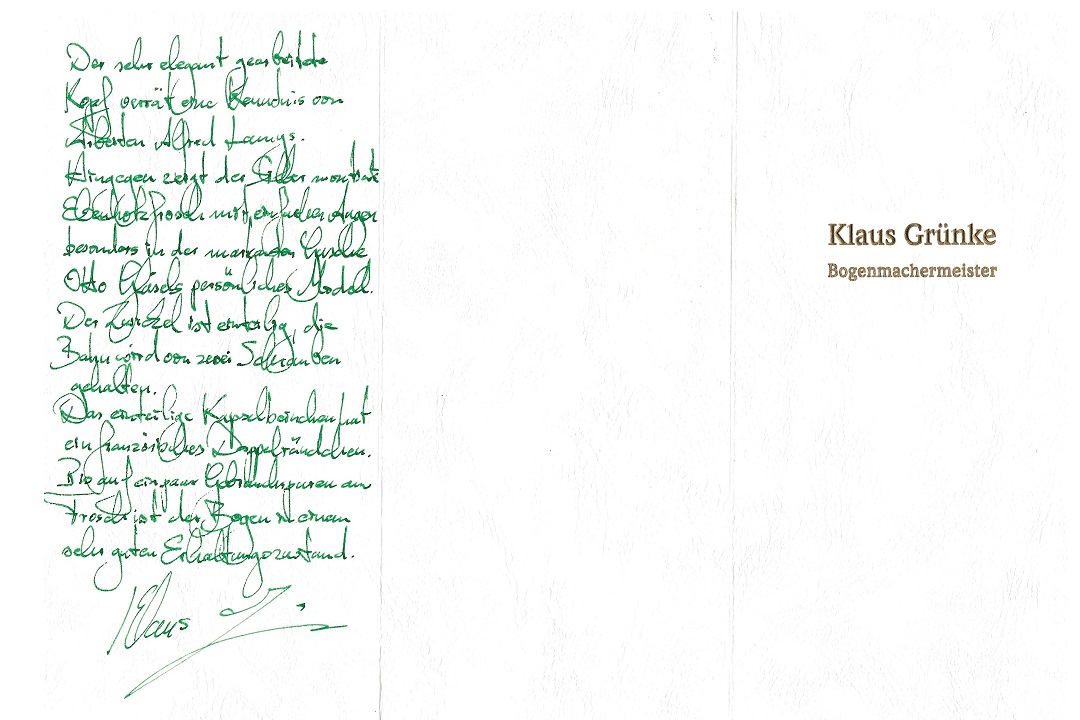 Der sehr elegant gearbeitete
Kopf verrät eine Kenntnis von
Arbeiten Alfred Lamys.
Hingegen zeigt der Silber montierte
Ebenholzfrosch mit einfachen Augen
besonders in der markanten
Otto persönliches Modell.
Der Zwickel ist einteilig, die
Bahn wird von zwei Schrauben
gehalten.
Das einteilige Kapselbeinchen hat
ein französisches Doppelrändchen.
Bis auf ein paar Gebrauchspuren am
Frosch ist der Bogen in einem
sehr guten Erhaltungszustand.
Klaus
Klaus Grünke
Bogenmachermeister